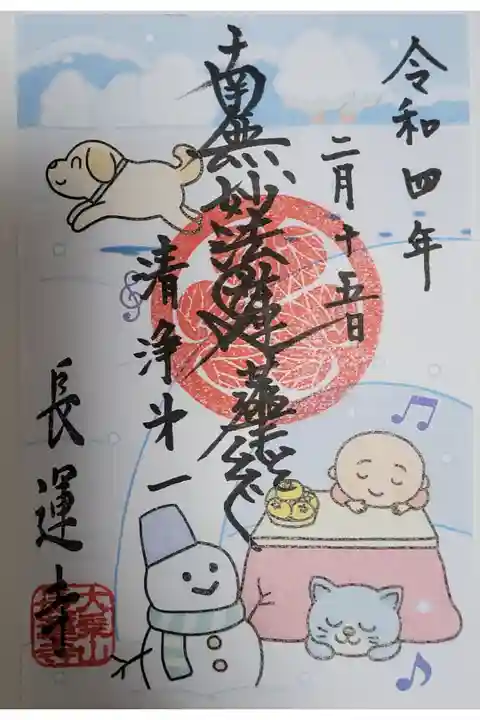 令和四年
二月十五日
南無妙法蓮華経
清浄第一
長運寺